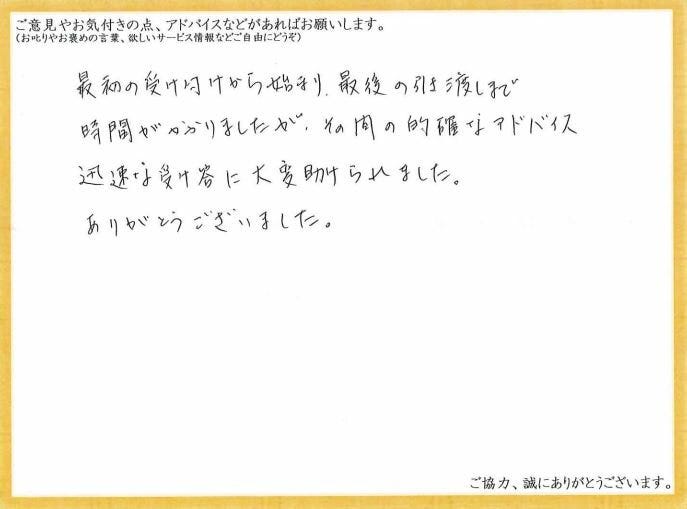 ご意見やお気付きの点、アドバイスなどがあればお願いします。
(お叱りやお褒めの言葉、欲しいサービス情報などご自由にどうぞ)
最初の受け付けから始まり、最後の引き渡しまで
時間がかかりましたが、その間の的確なアドバイス
迅速な受け答に大変助けられました。
ありがとうございました。
ご協力、誠にありがとうございます。